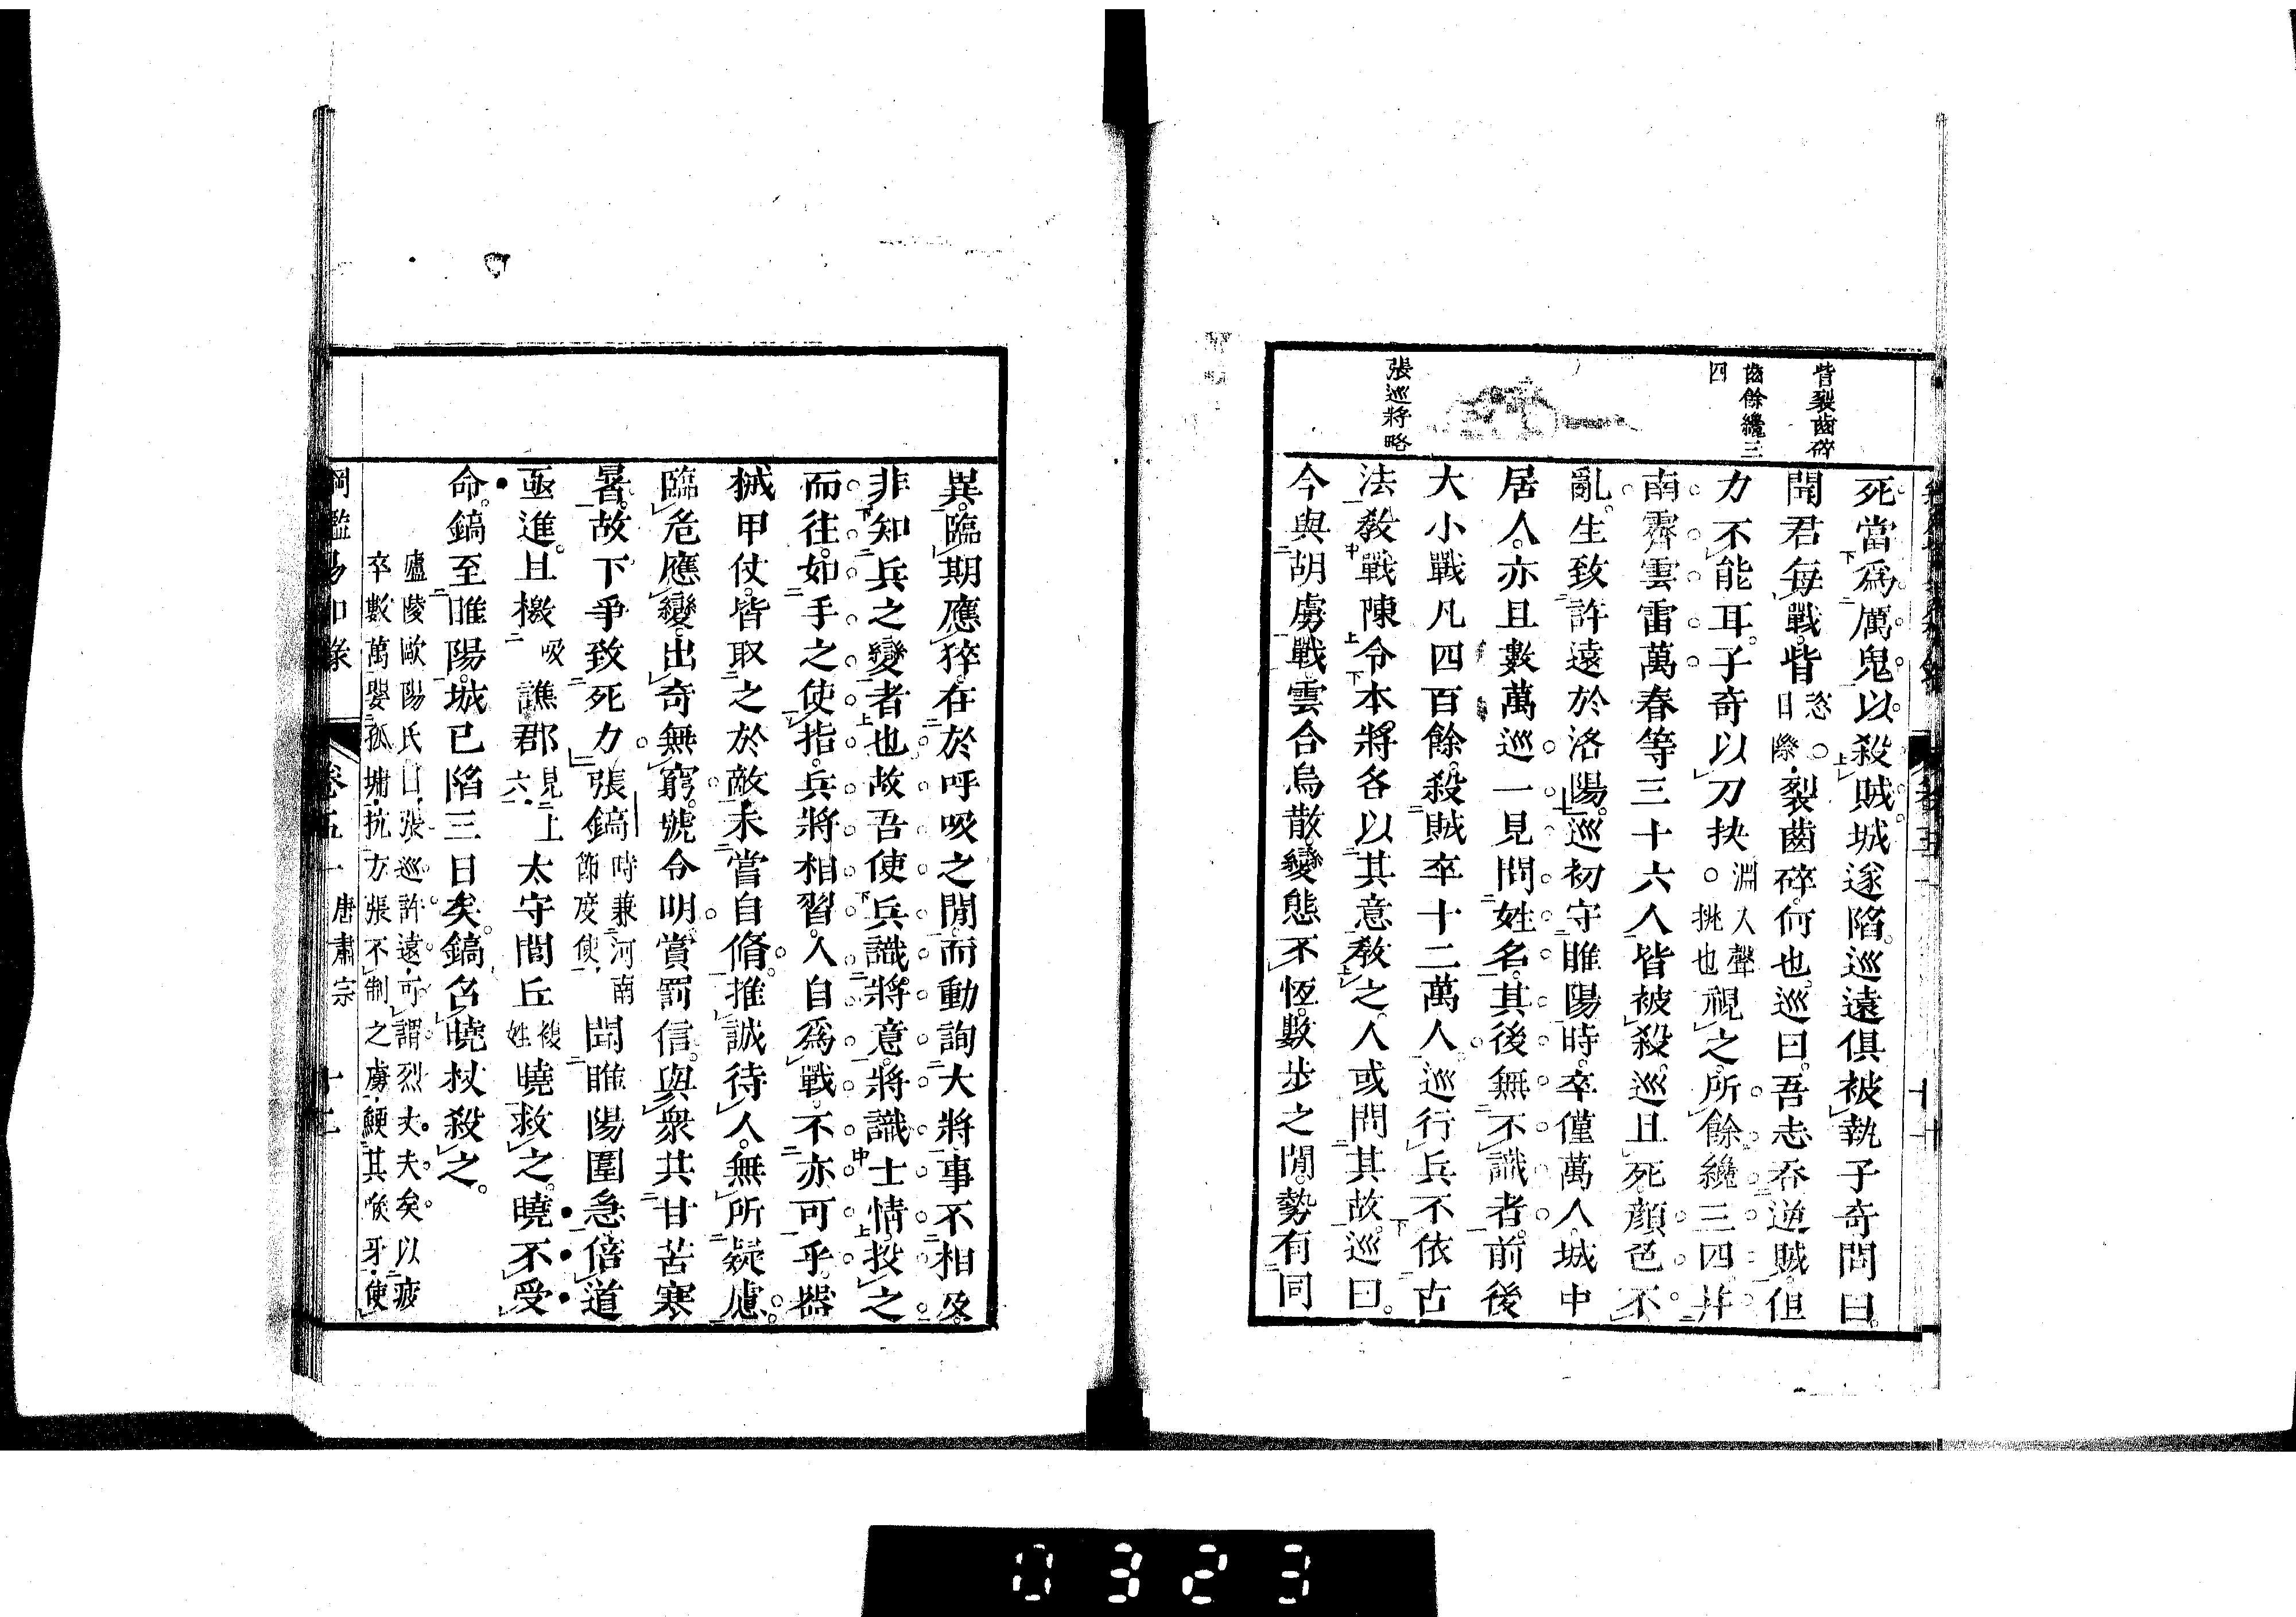 眥裂齒碎
齒餘纔三
四
張巡將略
死當爲厲鬼以殺賊城遂陷巡遠俱被執子奇問曰
聞君每戰眥恣目際裂齒碎何也巡曰吾志吞逆賊但
力不能耳子奇以刀抉淵入聲挑也視之所餘纔三四幷
南霽雲雷萬春等三十六人皆被殺巡且死顔色不
亂生致許遠於洛陽巡初守睢陽時卒僅萬人城中
居人亦且數萬巡一見問姓名其後無不識者前後
大小戰凡四百餘殺賊卒十二萬人巡行兵不依古
法敎戰陳令本將各以其意敎之人或問其故巡曰
今與胡虜戰雲合鳥散變態不恆數步之閒勢有同
異臨期應猝在於呼吸之閒而動詢大將事不相及
非知兵之變者也故吾使兵識將意將識士情投之
而往如手之使指兵將相習人自爲戰不亦可乎器
械甲仗皆取之於敵未嘗自脩推誠待人無所疑慮
臨危應變出奇無窮號令明賞罰信與衆共甘苦寒
暑故下爭致死力張鎬時兼河南節度使聞睢陽圍急倍道
亟進且檄吸譙郡見上六太守閭丘複姓曉救之曉不受
命鎬至睢陽城已陷三日矣鎬召曉杖殺之
廬陵歐陽氏曰張巡許遠可謂烈丈夫矣以疲
卒數萬嬰孤墉抗方張不制之虜鯁其喉牙使
綱鑑易知錄 卷五十一 唐肅宗 十二